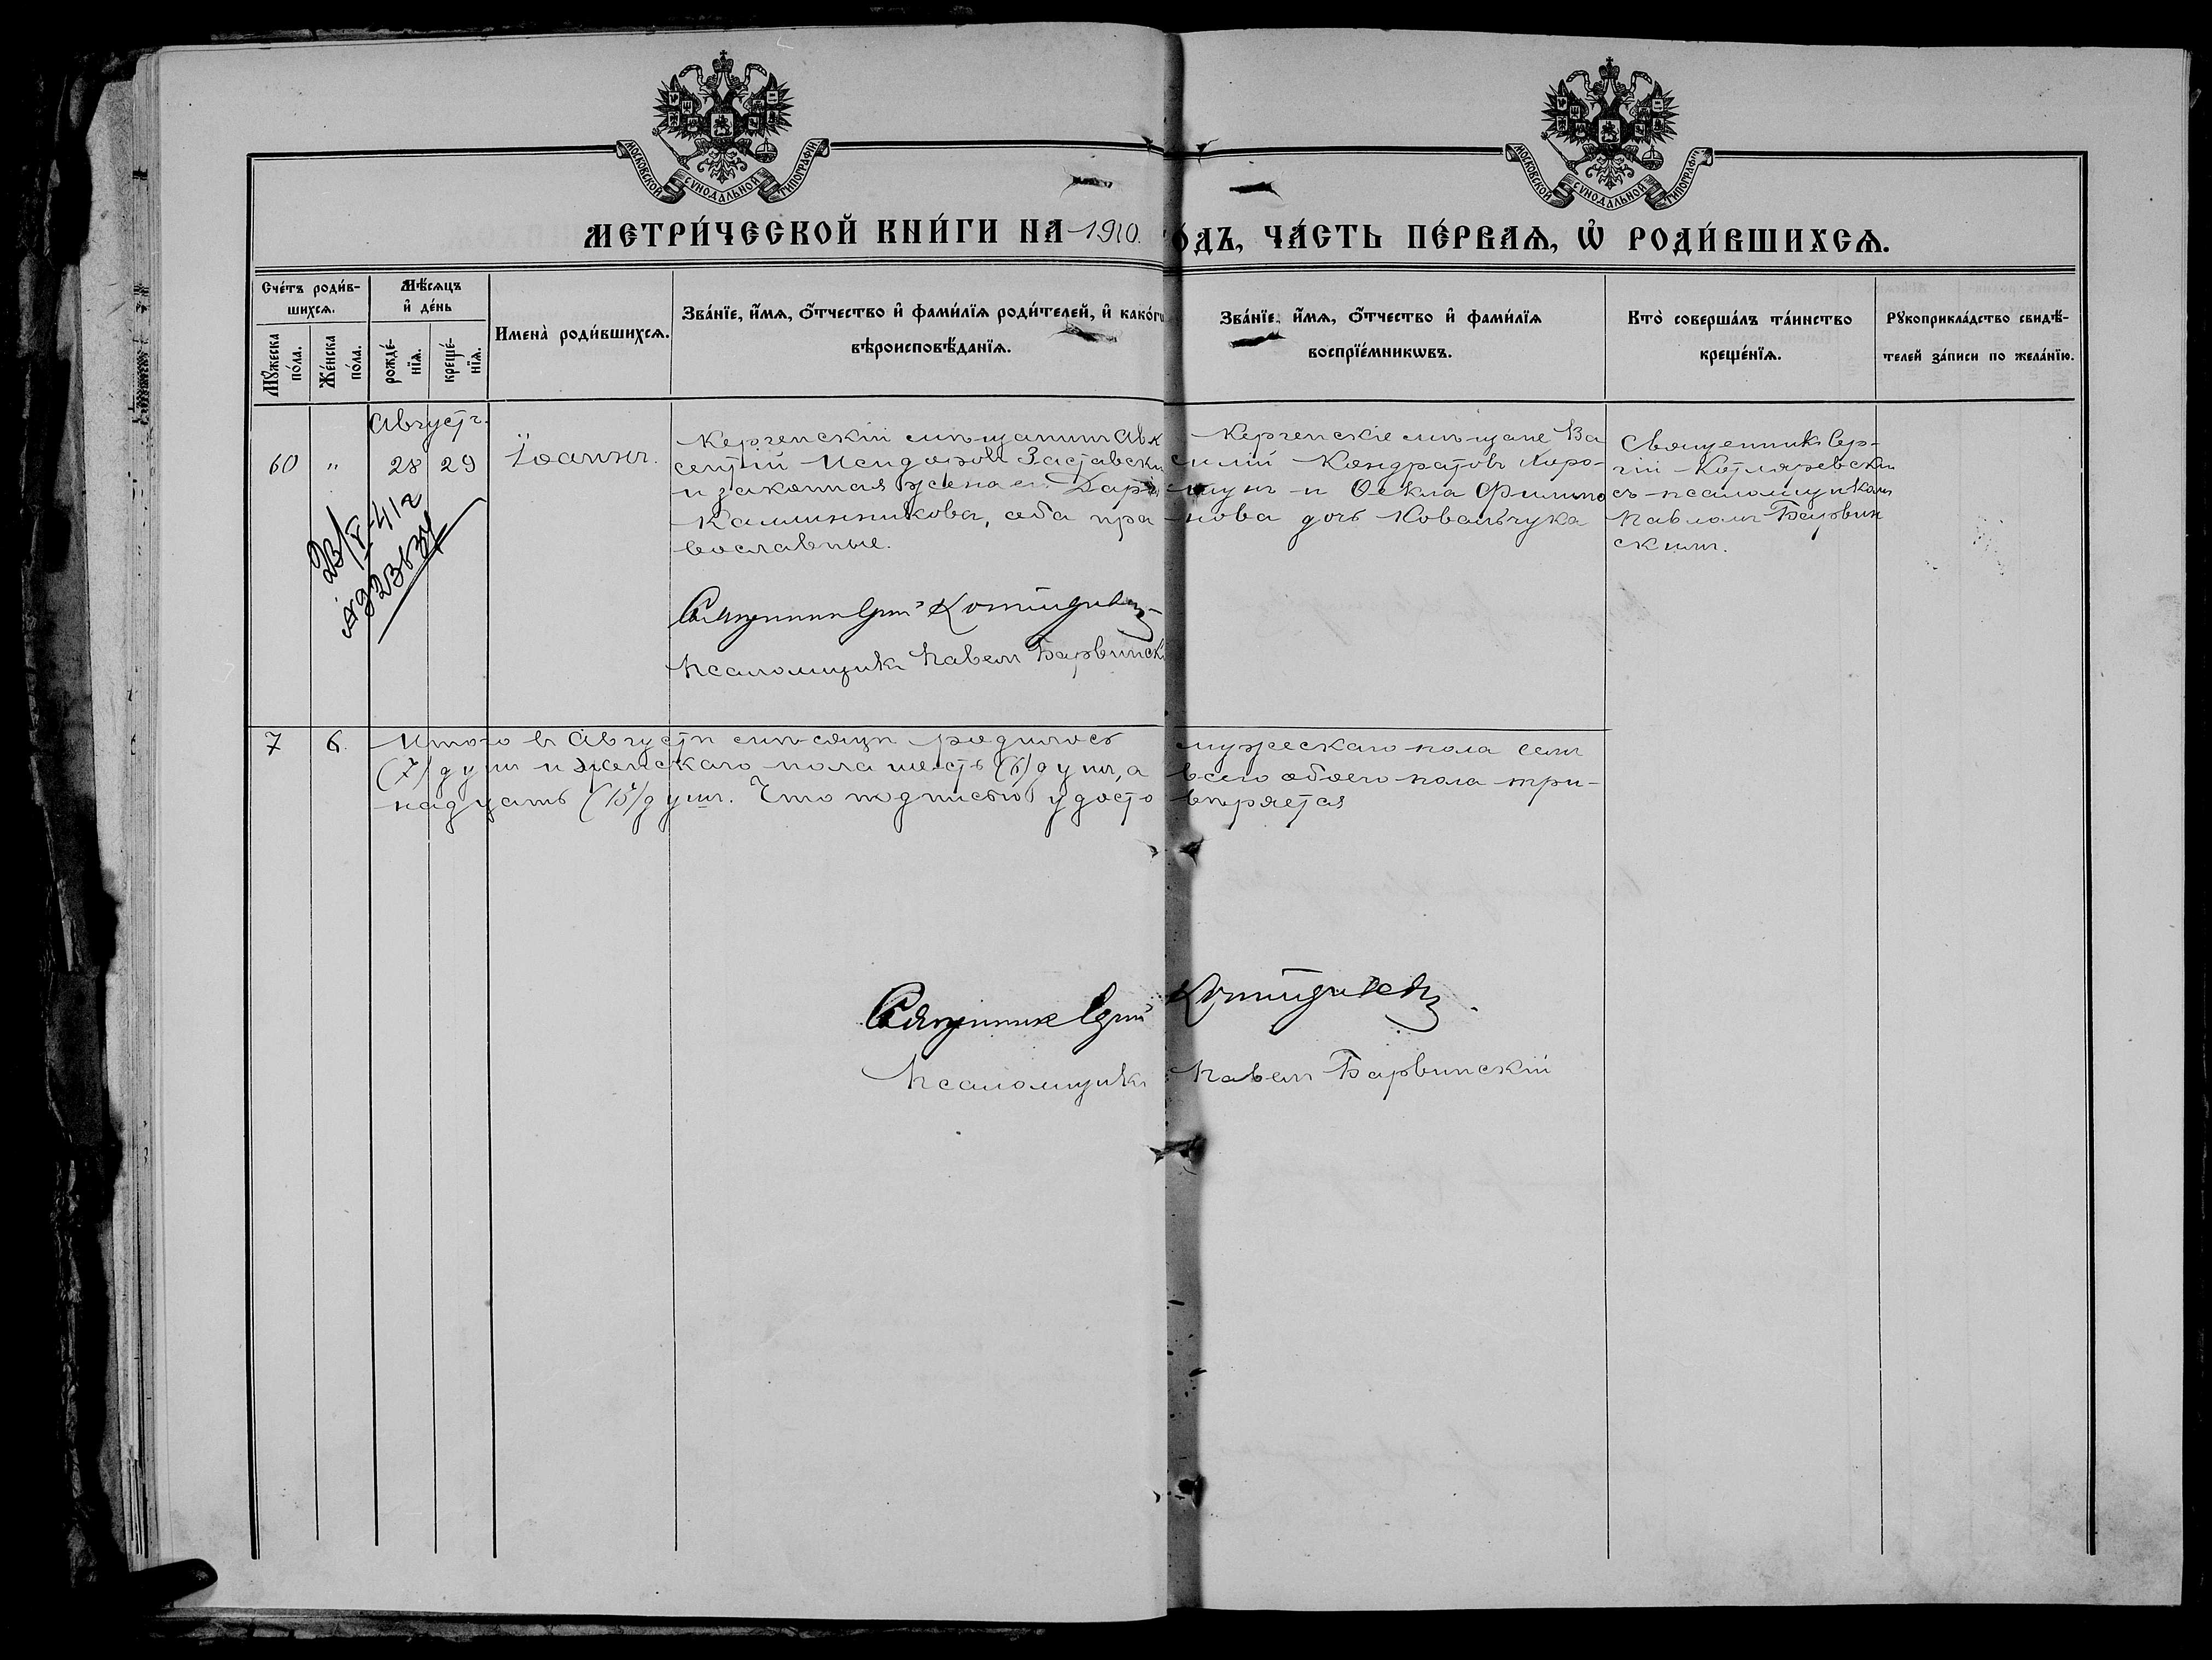 МОСКОВСКОЙ СѴНОДАЛЬНОЙ ТИПОГРАФІИ
МОСКОВСКОЙ СѴНОДАЛЬНОЙ ТИПОГРАФІИ
МЕТРИ́ЧЕСКОЙ КНИ́ГИ НА 1910. ГО́ДЪ, ЧА́СТЬ ПЕ́РВАѦ, Ѡ҆ РОДИ́ВШИХСѦ.
Сче́тъ роди́в-
шихсѧ.
Мꙋ́жеска по́ла.
Же́нска по́ла.
Мѣ́сѧцъ
и҆ де́нь
рожде́-нїѧ.
креще́-нїѧ.
Имена̀ роди́вшихсѧ.
Зва́нїе, и҆́мѧ, о҆́тчество и҆ фами́лїѧ роди́телей, и҆ како́гѡ
вѣроисповѣ́данїѧ.
Зва́нїе, и҆́мѧ, о҆́тчество и҆ фами́лїѧ
воспрїе́мникѡвъ.
Кто̀ соверша́лъ та́инство
креще́нїѧ.
Рꙋкоприкла́дство свидѣ́-
телей за́писи по жела́нїю.
Августъ.
60 " 28 29 Іоаннъ.
Керченскій мѣщанинъ Авк
сентій Исидоровъ Заставскій
и законная жена его Дарія
Калинникова, оба пра
вославные.
Керченскіе мѣщане Ва
силій Кондратовъ Хоро-
шунъ и Ѳекла Филиппо
нова дочь Ковальчука
Священникъ Сер-
гій Котляревскій
съ псаломщикомъ
Павломъ Барвин
скимъ.
Священникъ Сергій Котляревскій
Псаломщикъ Павелъ Барвинскій
7 6. Итого въ Августѣ мѣсяцѣ родилось мужескаго пола семь
(7) душъ и женскаго пола шесть (6) душъ, а всего обоего пола три-
надцать (13) душъ. Что подписью удосто вѣряется
Священникъ Сергій Котляревскій
Псаломщикъ Павелъ Барвинскій